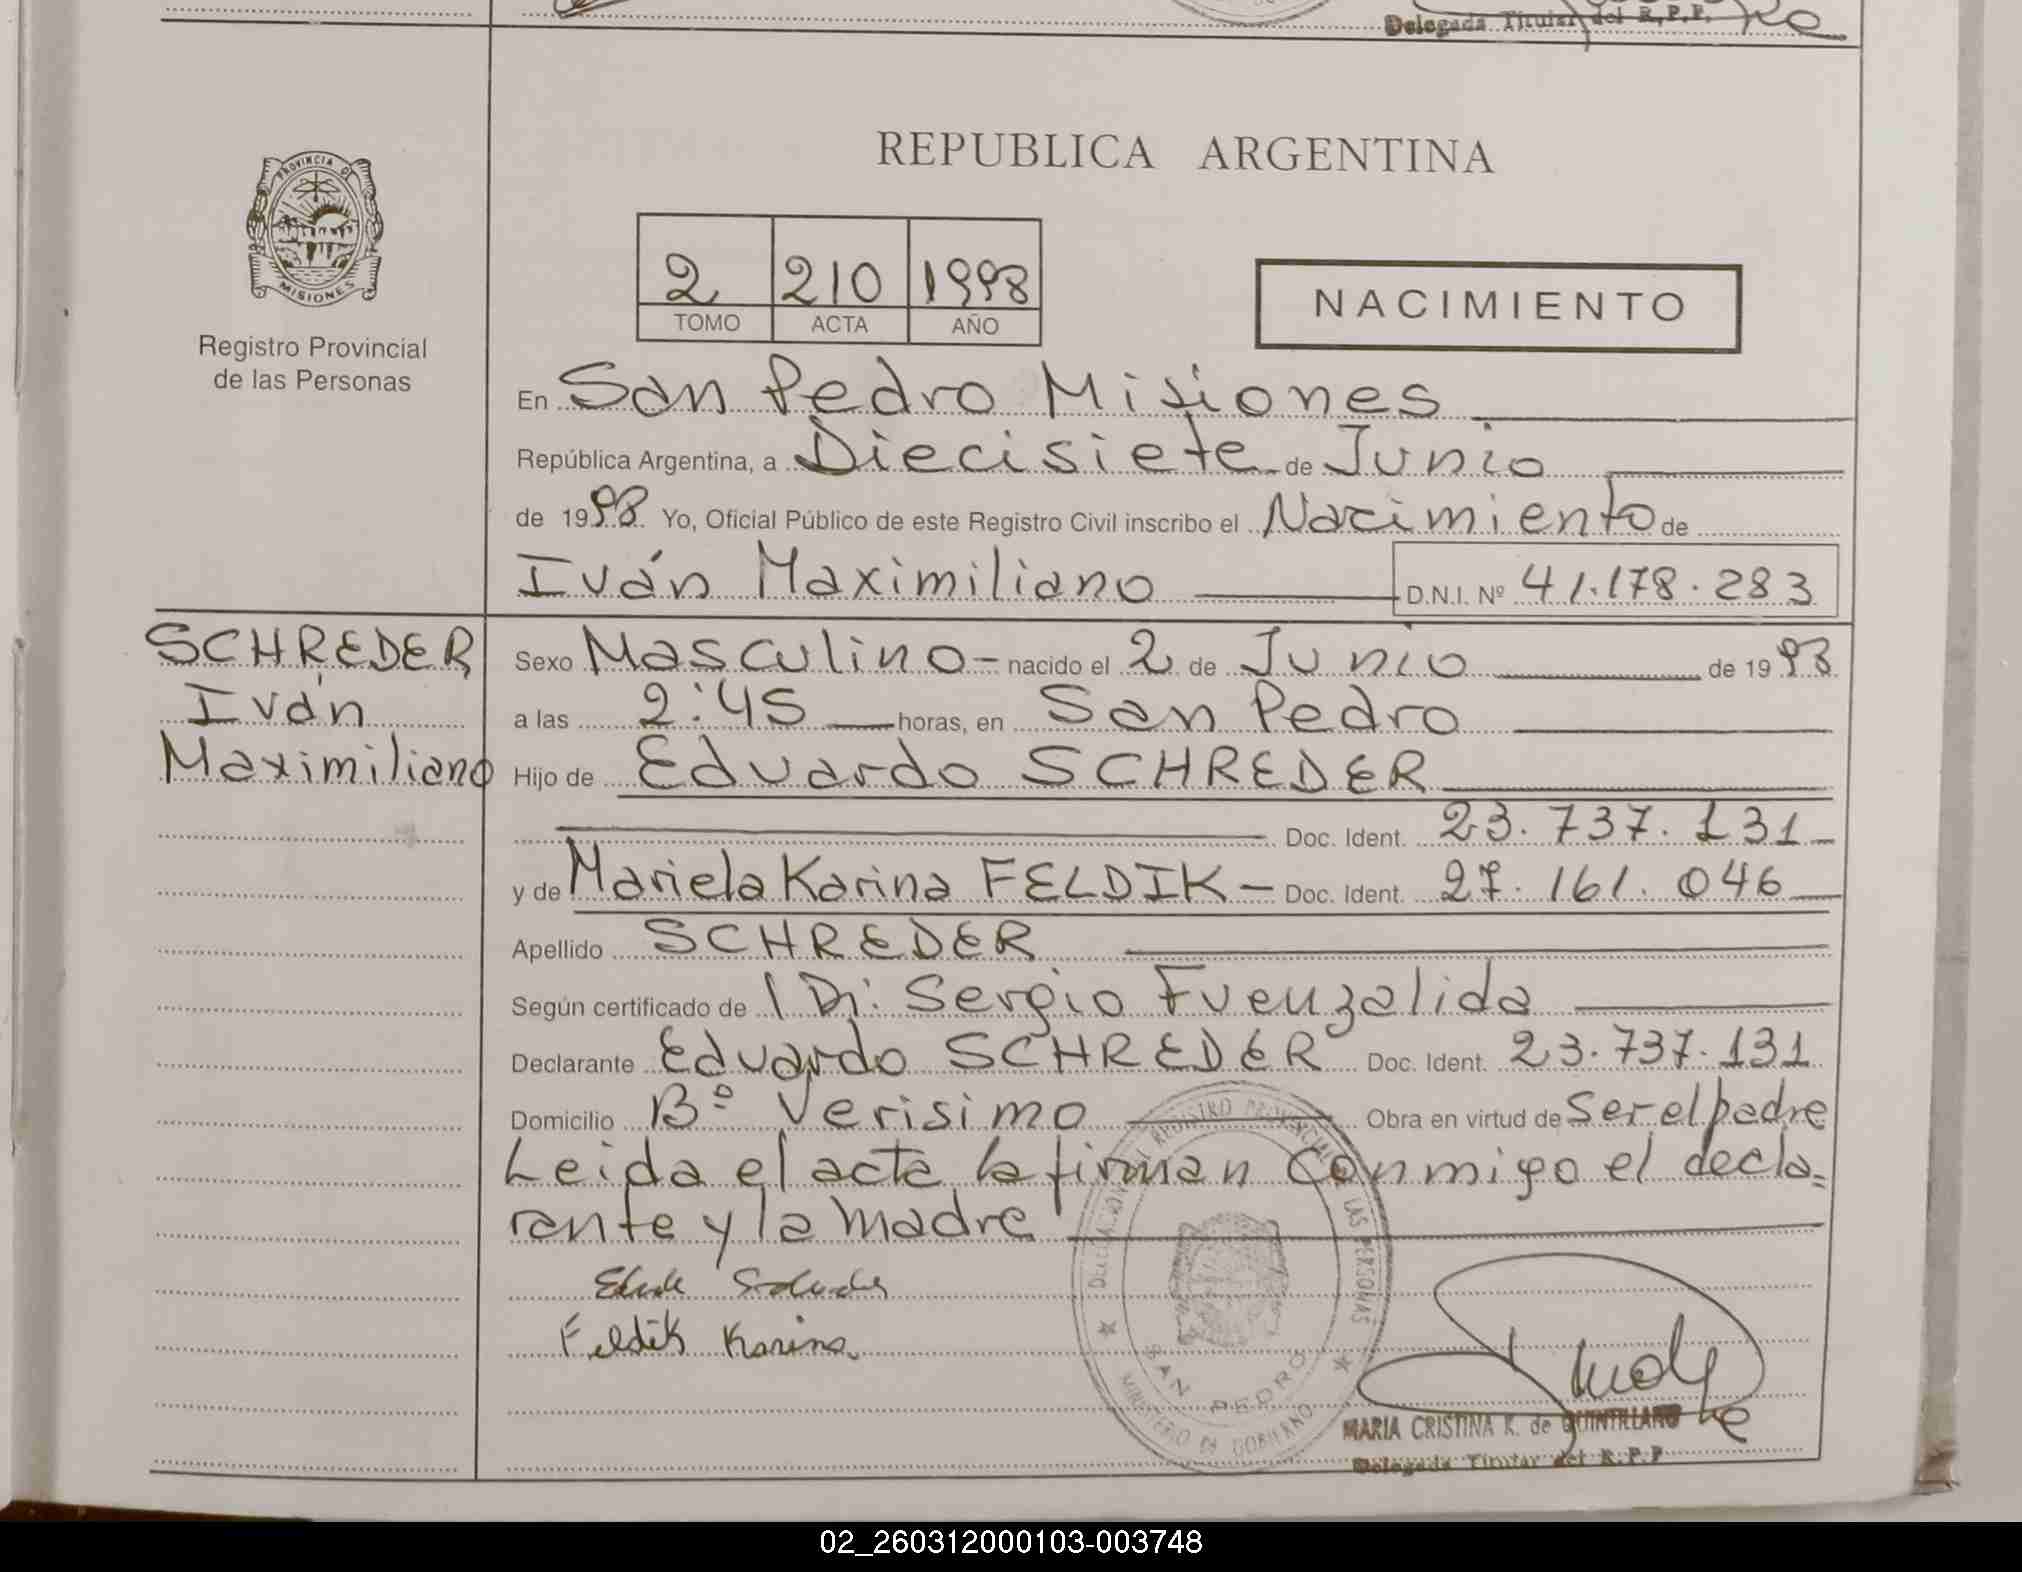 Delegada Titular del R.P.P.
PROVINCIA DE
MISIONES
Registro Provincial
de las Personas
REPUBLICA ARGENTINA
2 210 1998
TOMO ACTA AÑO
NACIMIENTO
En San Pedro Misiones
República Argentina, a Diecisiete de Junio
de 1998 Yo, Oficial Público de este Registro Civil inscribo el Nacimiento de
Iván Maximiliano D.N.I. Nº 41.178.283
SCHREDER
Iván
Maximiliano
Sexo Masculino - nacido el 2 de Junio de 1998
a las 2:45 horas, en San Pedro
Hijo de Eduardo SCHREDER
Doc. Ident. 23.737.131
y de Mariela Karina FELDIK - Doc. Ident. 27.161.046
Apellido SCHREDER
Según certificado de Dr: Sergio Fuenzalida
Declarante Eduardo SCHREDER Doc. Ident. 23.737.131
Domicilio Bº Verisimo Obra en virtud de Ser el padre
Leida el acta la firman conmigo el decla=
rante y la madre
Feldik Karina
REGISTRO PROVINCIAL DE LAS PERSONAS
SAN PEDRO
MINISTERIO DE GOBIERNO
MARIA CRISTINA K. de QUINTILLANO
Delegada Titular del R.P.P
02_260312000103-003748